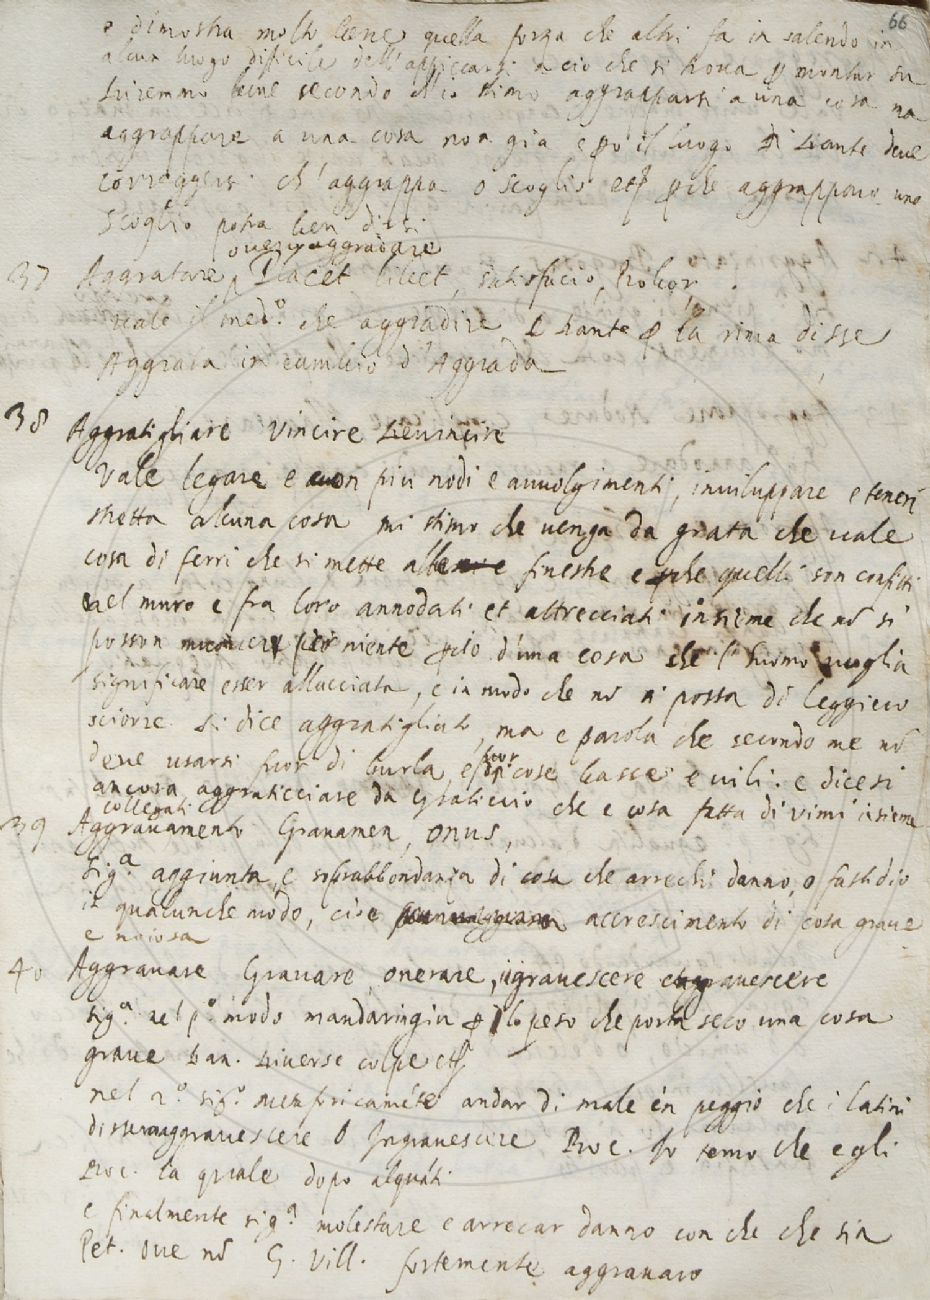 66
e dimostra molto bene quella forza che altri fa in salendo in
alcun luogo dificile dell'appiccarsi a cio che si trova p montar su
diremmo bene secondo ch'io stimo aggrapparsi a una cosa ma
aggrappare a una cosa non gia e po il luogo di Dante deve
correggersi ch'aggrappa o scoglio etc pche aggrappano uno
scoglio potra ben dirsi
overo aggradare
37 Aggratare Placet libet, satisfacio, probor,
vale il med.o che aggradire e Dante p la rima disse
Aggrata in cambio d'Aggrada
38 Aggratigliare Vincire devincire
Vale legare e con piu nodi e avvolgimenti, inviluppare e tener
stretta alcuna cosa mi stimo che venga da grata che vale
cosa di ferri che si mette alle finestre e pche quelli son confitti
nel muro e fra loro annodati et attrecciati insieme che nō si
posson niente pcio d'una cosa che l'huomo voglia
significare esser allacciata, e in modo che nō si possa di leggiero
sciorre si dice aggratigliato, ma e parola che secondo me nō
deve usarsi fuor di burla, e di cose basse e vili. e dicesi
ancora aggraticciare da Graticcio che e cosa fatta di vimi insieme
collegati
39 Aggravamento Gravamen, onus,
sig.a aggiunta, e soprabbondanza di cosa che arrechi danno, o fastidio
in qualunche modo, cioe accrescimento di cosa grave
e noiosa
40 Aggravare Gravare, onerare, ingravescere
sig.a nel p.o modo mandar in giu p lo peso che porta seco una cosa
grave Dan. Diverse colpe etc
nel 2.o sig.o andar di male in peggio che i latini
aggravescere o Ingravescere Boc. Io temo che egli
Boc. la quale dopo alquāti
e finalmente sig.a molestare e arrecar danno con che che sia
Pet. Ove nō G. Vill. fortemente aggravaro